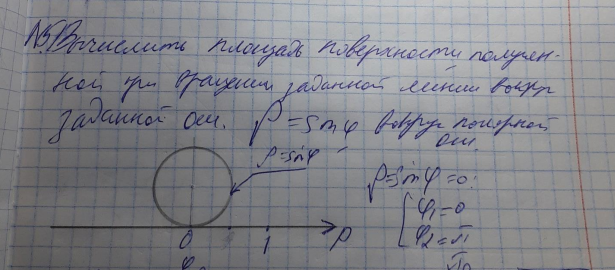 №5. Вычислить площадь поверхности, получен-
ной при вращении заданной линии вокруг
заданной оси. ρ = sin φ вокруг полярной
оси.
ρ=sin φ
ρ=sin φ =0:
φ₁=0
φ₂=π
0 1 ρ